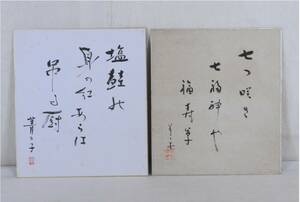 塩鮭の
身の紅あらは
吊る厨
菁々子
七つ咲き
七福神や
福寿草